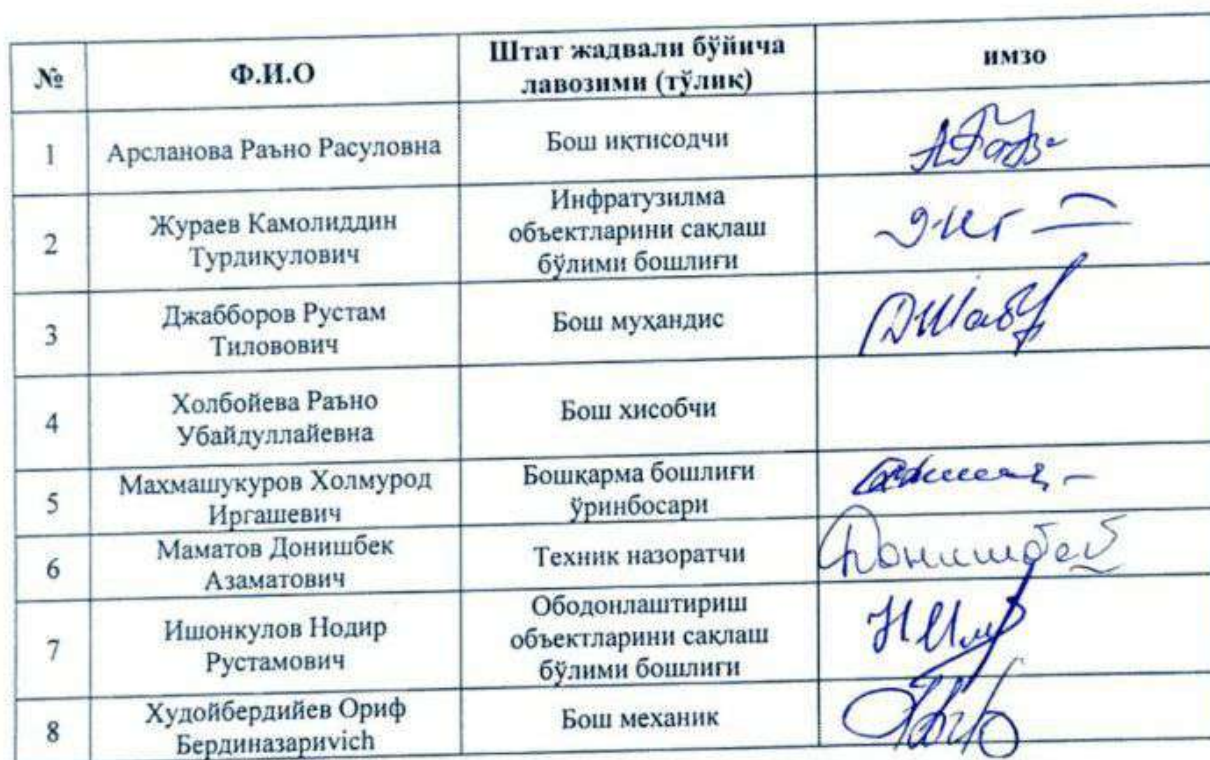 № Ф.И.О Штат жадвали бўйича лавозими (тўлиқ) имзо
1 Арсланова Раъно Расуловна Бош иқтисодчи
2 Жураев Камолиддин Турдиқулович Инфратузилма объектларини сақлаш бўлими бошлиғи
3 Джабборов Рустам Тиловович Бош муҳандис
4 Холбойева Раъно Убайдуллайевна Бош хисобчи
5 Махмашукуров Холмурод Иргашевич Бошқарма бошлиғи ўринбосари
6 Маматов Донишбек Азаматович Техник назоратчи Донишбек
7 Ишонкулов Нодир Рустамович Ободонлаштириш объектларини сақлаш бўлими бошлиғи
8 Худойбердийев Ориф Бердиназариvich Бош механик